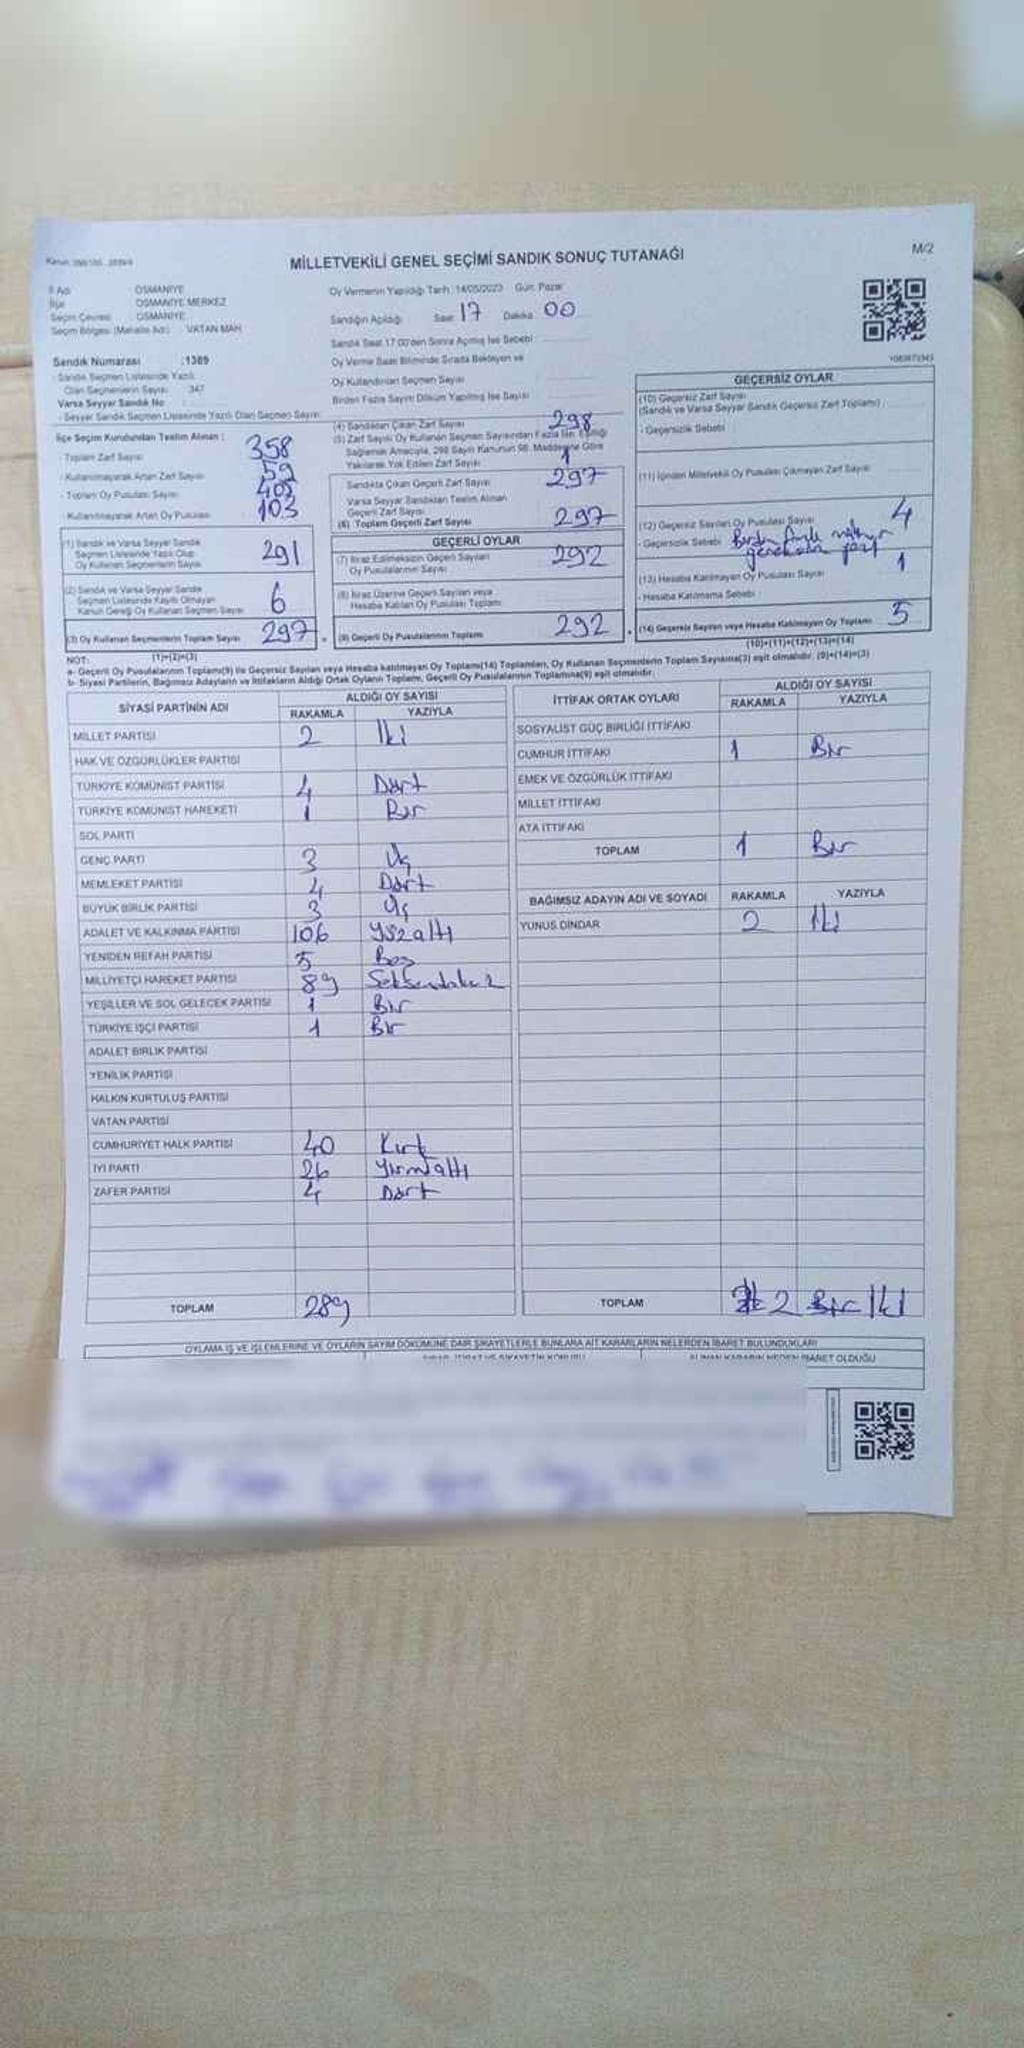 MİLLETVEKİLİ GENEL SEÇİMİ SANDIK SONUÇ TUTANAĞI
M/2
İl Adı : OSMANİYE
İlçe : OSMANİYE MERKEZ
Seçim Çevresi : OSMANİYE
Seçim Bölgesi (Mahalle Adı) : VATAN MAH
Oy Vermenin Yapıldığı Tarih :14/05/2023 Gün: Pazar
Sandığın Açıldığı Saat 17 Dakika 00
Sandık Saat 17.00'den Sonra Açılmış İse Sebebi
Oy Verme Saati Bitiminde Sırada Bekleyen ve
Oy Kullandırılan Seçmen Sayısı
Birden Fazla Sayım Döküm Yapılmış İse Sayısı
Sandık Numarası :1389
- Sandık Seçmen Listesinde Yazılı
Olan Seçmenlerin Sayısı : 347
Varsa Seyyar Sandık No
- Seyyar Sandık Seçmen Listesinde Yazılı Olan Seçmen Sayısı
İlçe Seçim Kurulundan Teslim Alınan :
- Toplam Zarf Sayısı 358
- Kullanılmayarak Artan Zarf Sayısı 59
- Toplam Oy Pusulası Sayısı
- Kullanılmayarak Artan Oy Pusulası 103
(1) Sandık ve Varsa Seyyar Sandık
Seçmen Listesinde Yazılı Olup
Oy Kullanan Seçmenlerin Sayısı 291
(2) Sandık ve Varsa Seyyar Sandık
Seçmen Listesinde Kayıtlı Olmayan
Kanun Gereği Oy Kullanan Seçmen Sayısı 6
(3) Oy Kullanan Seçmenlerin Toplam Sayısı 297
(1)+(2)=(3)
(4) Sandıktan Çıkan Zarf Sayısı 298
(5) Zarf Sayısı Oy Kullanan Seçmen Sayısından Fazla İse, Eşitliği
Sağlamak Amacıyla, 298 Sayılı Kanunun 98. Maddesine Göre
Yakılarak Yok Edilen Zarf Sayısı 1
Sandıkta Çıkan Geçerli Zarf Sayısı 297
Varsa Seyyar Sandıktan Teslim Alınan
Geçerli Zarf Sayısı
(6) Toplam Geçerli Zarf Sayısı 297
GEÇERLİ OYLAR
(7) İtiraz Edilmeksizin Geçerli Sayılan
Oy Pusulalarının Sayısı 292
(8) İtiraz Üzerine Geçerli Sayılan veya
Hesaba Katılan Oy Pusulası Toplamı
(9) Geçerli Oy Pusulalarının Toplamı 292
GEÇERSİZ OYLAR
(10) Geçersiz Zarf Sayısı
(Sandık ve Varsa Seyyar Sandık Geçersiz Zarf Toplamı)
- Geçersizlik Sebebi
(11) İçinden Milletvekili Oy Pusulası Çıkmayan Zarf Sayısı
(12) Geçersiz Sayılan Oy Pusulası Sayısı 4
- Geçersizlik Sebebi Birden fazla mühür
(13) Hesaba Katılmayan Oy Pusulası Sayısı 1
- Hesaba Katılmama Sebebi :
(14) Geçersiz Sayılan veya Hesaba Katılmayan Oy Toplamı 5
(10)+(11)+(12)+(13)=(14)
NOT:
a- Geçerli Oy Pusulalarının Toplamı(9) ile Geçersiz Sayılan veya Hesaba katılmayan Oy Toplamı(14) Toplamları, Oy Kullanan Seçmenlerin Toplam Sayısına(3) eşit olmalıdır. (9)+(14)=(3)
b- Siyasi Partilerin, Bağımsız Adayların ve İttifakların Aldığı Ortak Oyların Toplamı, Geçerli Oy Pusulalarının Toplamına(9) eşit olmalıdır.
SİYASİ PARTİNİN ADI ALDIĞI OY SAYISI
RAKAMLA YAZIYLA
MİLLET PARTİSİ 2 İki
HAK VE ÖZGÜRLÜKLER PARTİSİ
TÜRKİYE KOMÜNİST PARTİSİ 4 Dört
TÜRKİYE KOMÜNİST HAREKETİ 1 Bir
SOL PARTİ
GENÇ PARTİ 3 Üç
MEMLEKET PARTİSİ 4 Dört
BÜYÜK BİRLİK PARTİSİ 3 Üç
ADALET VE KALKINMA PARTİSİ 106 Yüzaltı
YENİDEN REFAH PARTİSİ 5 Beş
MİLLİYETÇİ HAREKET PARTİSİ 89 Seksendokuz
YEŞİLLER VE SOL GELECEK PARTİSİ 1 Bir
TÜRKİYE İŞÇİ PARTİSİ 1 Bir
ADALET BİRLİK PARTİSİ
YENİLİK PARTİSİ
HALKIN KURTULUŞ PARTİSİ
VATAN PARTİSİ
CUMHURİYET HALK PARTİSİ 40 Kırk
İYİ PARTİ 26 Yirmialtı
ZAFER PARTİSİ 4 Dört
TOPLAM 289
İTTİFAK ORTAK OYLARI ALDIĞI OY SAYISI
RAKAMLA YAZIYLA
SOSYALİST GÜÇ BİRLİĞİ İTTİFAKI
CUMHUR İTTİFAKI 1 Bir
EMEK VE ÖZGÜRLÜK İTTİFAKI
MİLLET İTTİFAKI
ATA İTTİFAKI
TOPLAM 1 Bir
BAĞIMSIZ ADAYIN ADI VE SOYADI RAKAMLA YAZIYLA
YUNUS DİNDAR 2 İki
TOPLAM 2 Bir İki
OYLAMA İŞ VE İŞLEMLERİNE VE OYLARIN SAYIM DÖKÜMÜNE DAİR ŞİKAYETLERLE BUNLARA AİT KARARLARIN NELERDEN İBARET BULUNDUKLARI
ALINAN KARARIN NEDEN İBARET OLDUĞU